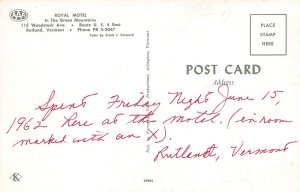 AAA
ROYAL MOTEL
In The Green Mountains
115 Woodstock Ave. • Route U. S. 4 East
Rutland, Vermont • Phone PR 3-2047
Color by Frank L. Forward
PLACE
STAMP
HERE
POST CARD
Address
Spent Friday Night June 15,
1962 here at the motel. (in room
marked with an X).
Rutland, Vermont
K